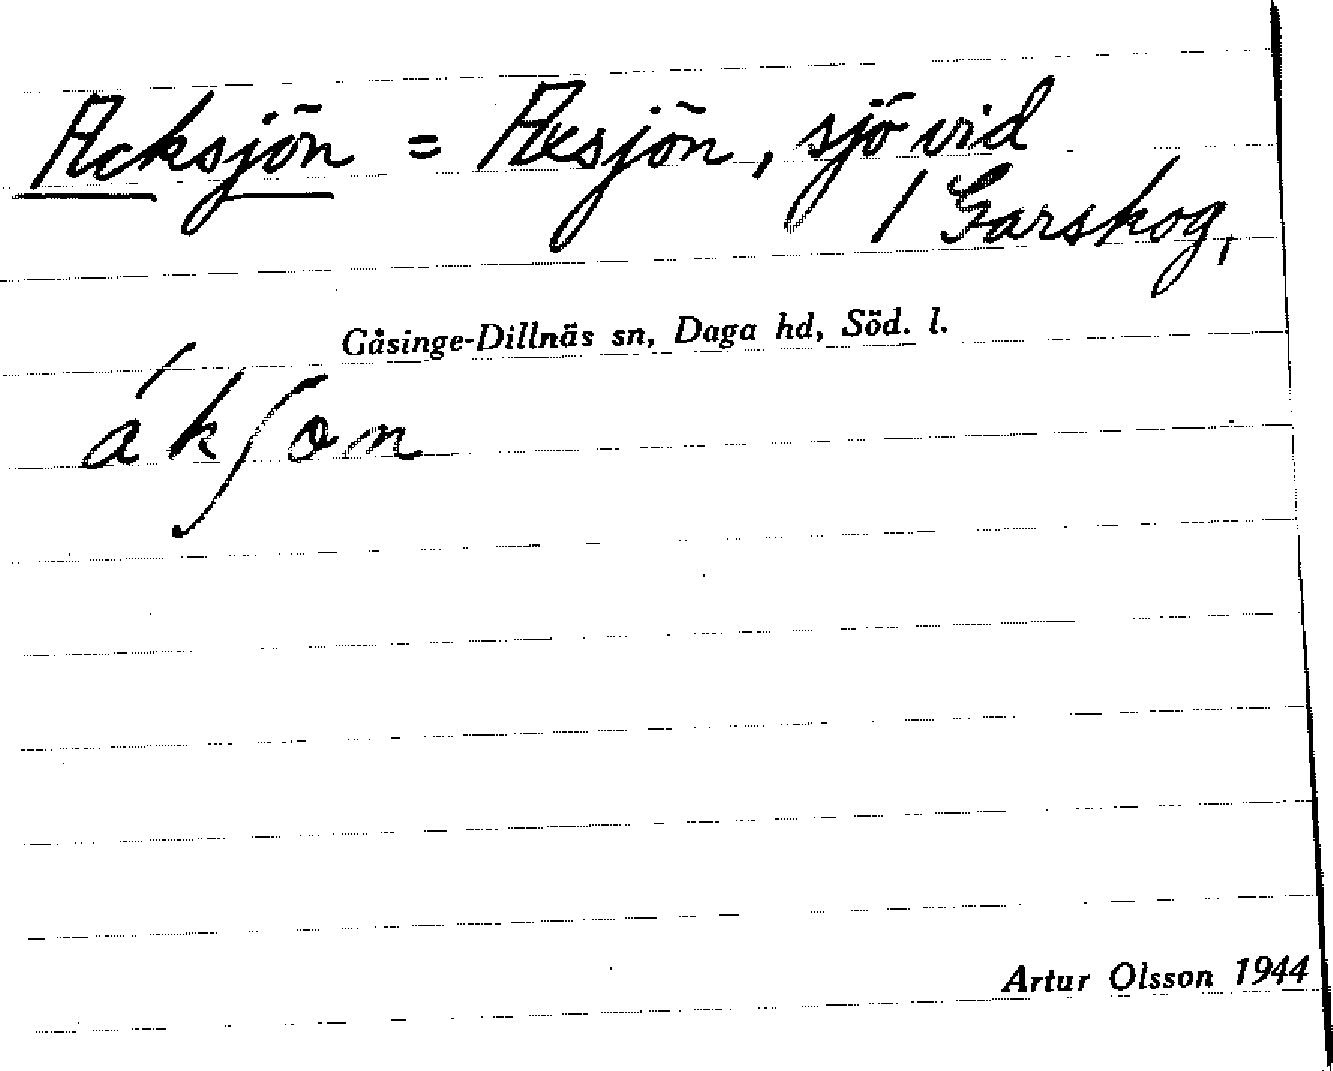 Acksjön = Axsjön, sjö vid
/ Garskog,
Gåsinge-Dillnäs sn, Daga hd, Söd. l.
ákʃon
Artur Olsson 1944